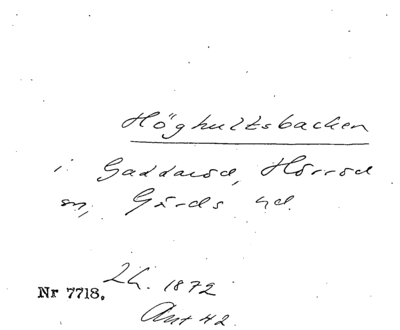 Höghultsbacken
i Gaddaröd, Hörröd
sn, Gärds hd.
Lh. 1872
Nr 7718.
Ant 42.